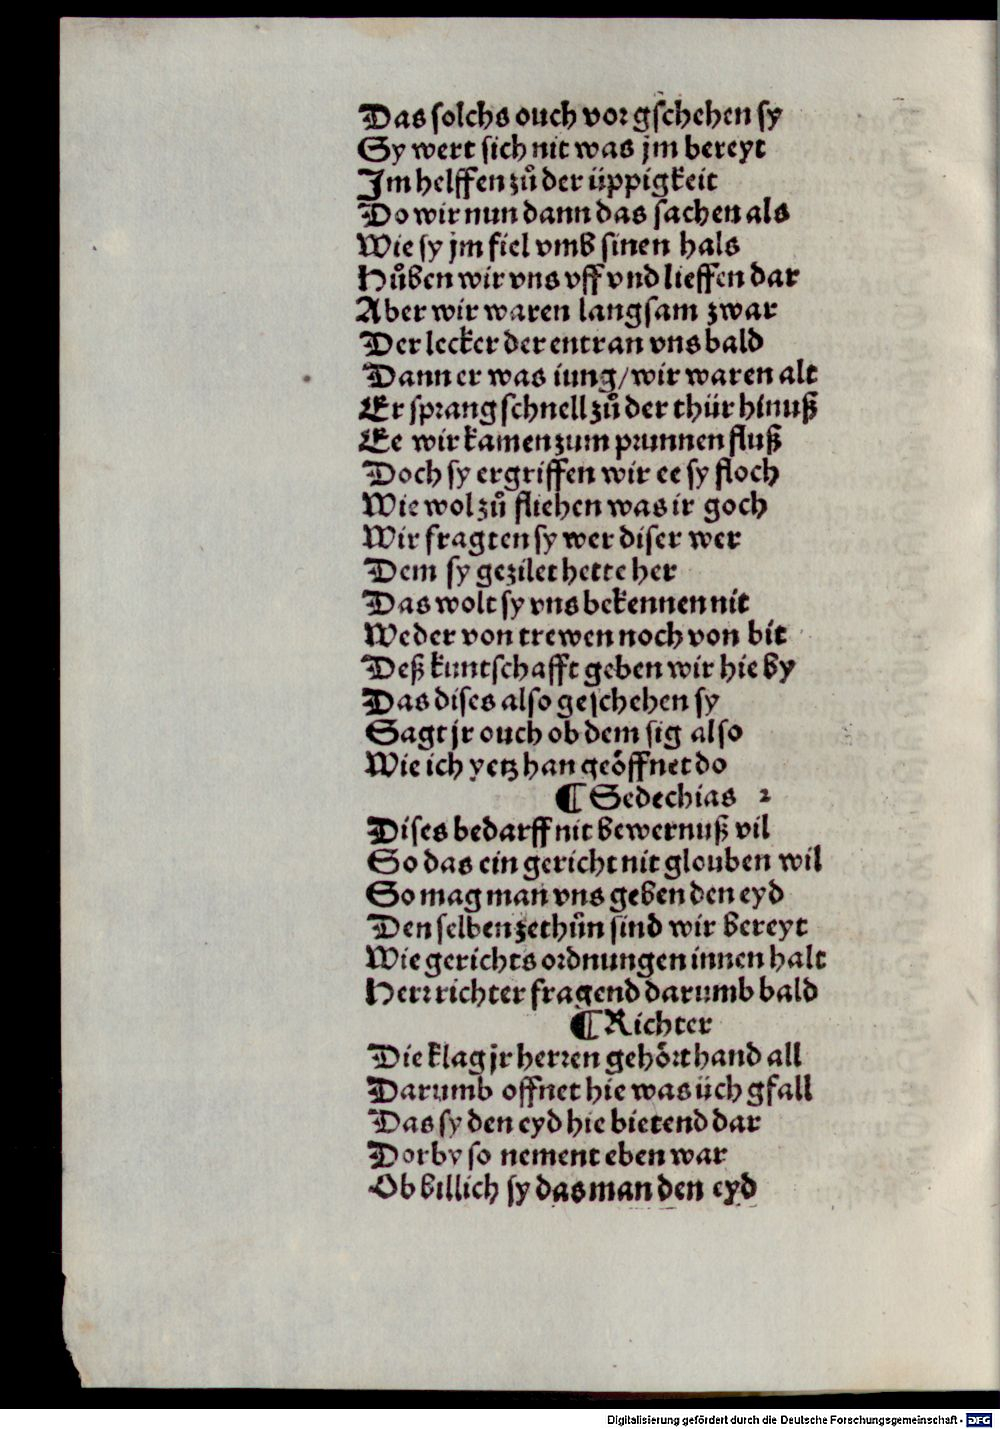 Das solchs ouch vor gschehen sy
Sy wert sich nit was jm bereyt
Im helffen zuͦ der üppigkeit
Do wir nun dann das sachen als
Wie sy jm fiel vmb sinen hals
Huͦben wir vns vff vnd lieffen dar
Aber wir waren langsam zwar
Der lecker der entran vns bald
Dann er was iung/wir waren alt
Er sprang schnell zuͦ der thür hinuß
Ee wir kamen zum prunnen fluß
Doch sy ergriffen wir ee sy floch
Wie wol zuͦ fliehen was ir goch
Wir fragten sy wer diser wer
Dem sy gezilet hette her
Das wolt sy vns bekennen nit
Weder von trewen noch von bit
Deß kuntschafft geben wir hie by
Das dises also geschehen sy
Sagt jr ouch ob dem sig also
Wie ich yetz han geöffnet do
¶ Sedechias 2
Dises bedarff nit bewernuß vil
So das ein gericht nit glouben wil
So mag man vns geben den eyd
Den selben zethuͦn sind wir bereyt
Wie gerichts ordnungen innen halt
Herr richter fragend darumb bald
¶ Richter
Die klag jr herren gehört hand all
Darumb offnet hie was üch gfall
Das sy den eyd hie bietend dar
Dorby so nement eben war
Ob billich sy das man den eyd
Digitalisierung gefördert durch die Deutsche Forschungsgemeinschaft - DFG